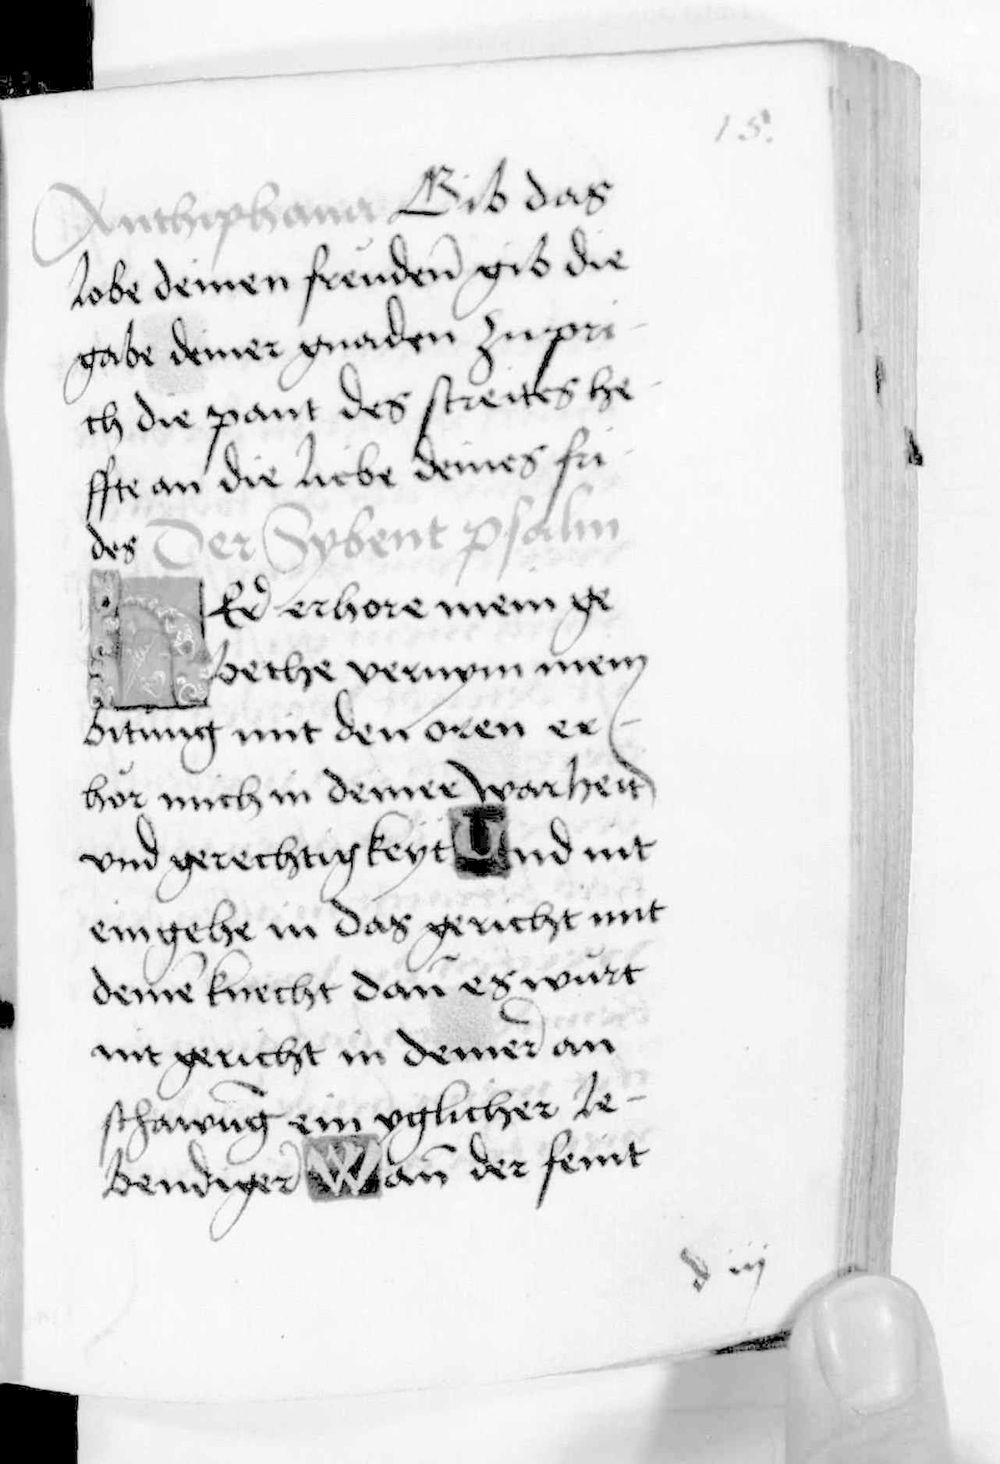 15.
Anthiphana Gib das
lobe deinen freuden̄ gib die
gabe deiner gnaden zupri-
ch die pant des streites he-
ffte an die liebe deines fri-
des Der Sybent psalm
HEr erhore mein ge
bethe vernym mein
bitung mit den oren er-
hör mich in deiner warheit
vnd gerechtigkeyt Und nit
eingehe in das gericht mit
deinē knecht dan̄ es würt
nit gericht in deiner an
schawūg ein yglicher le-
bendiger Wan̄ der feint
d iij